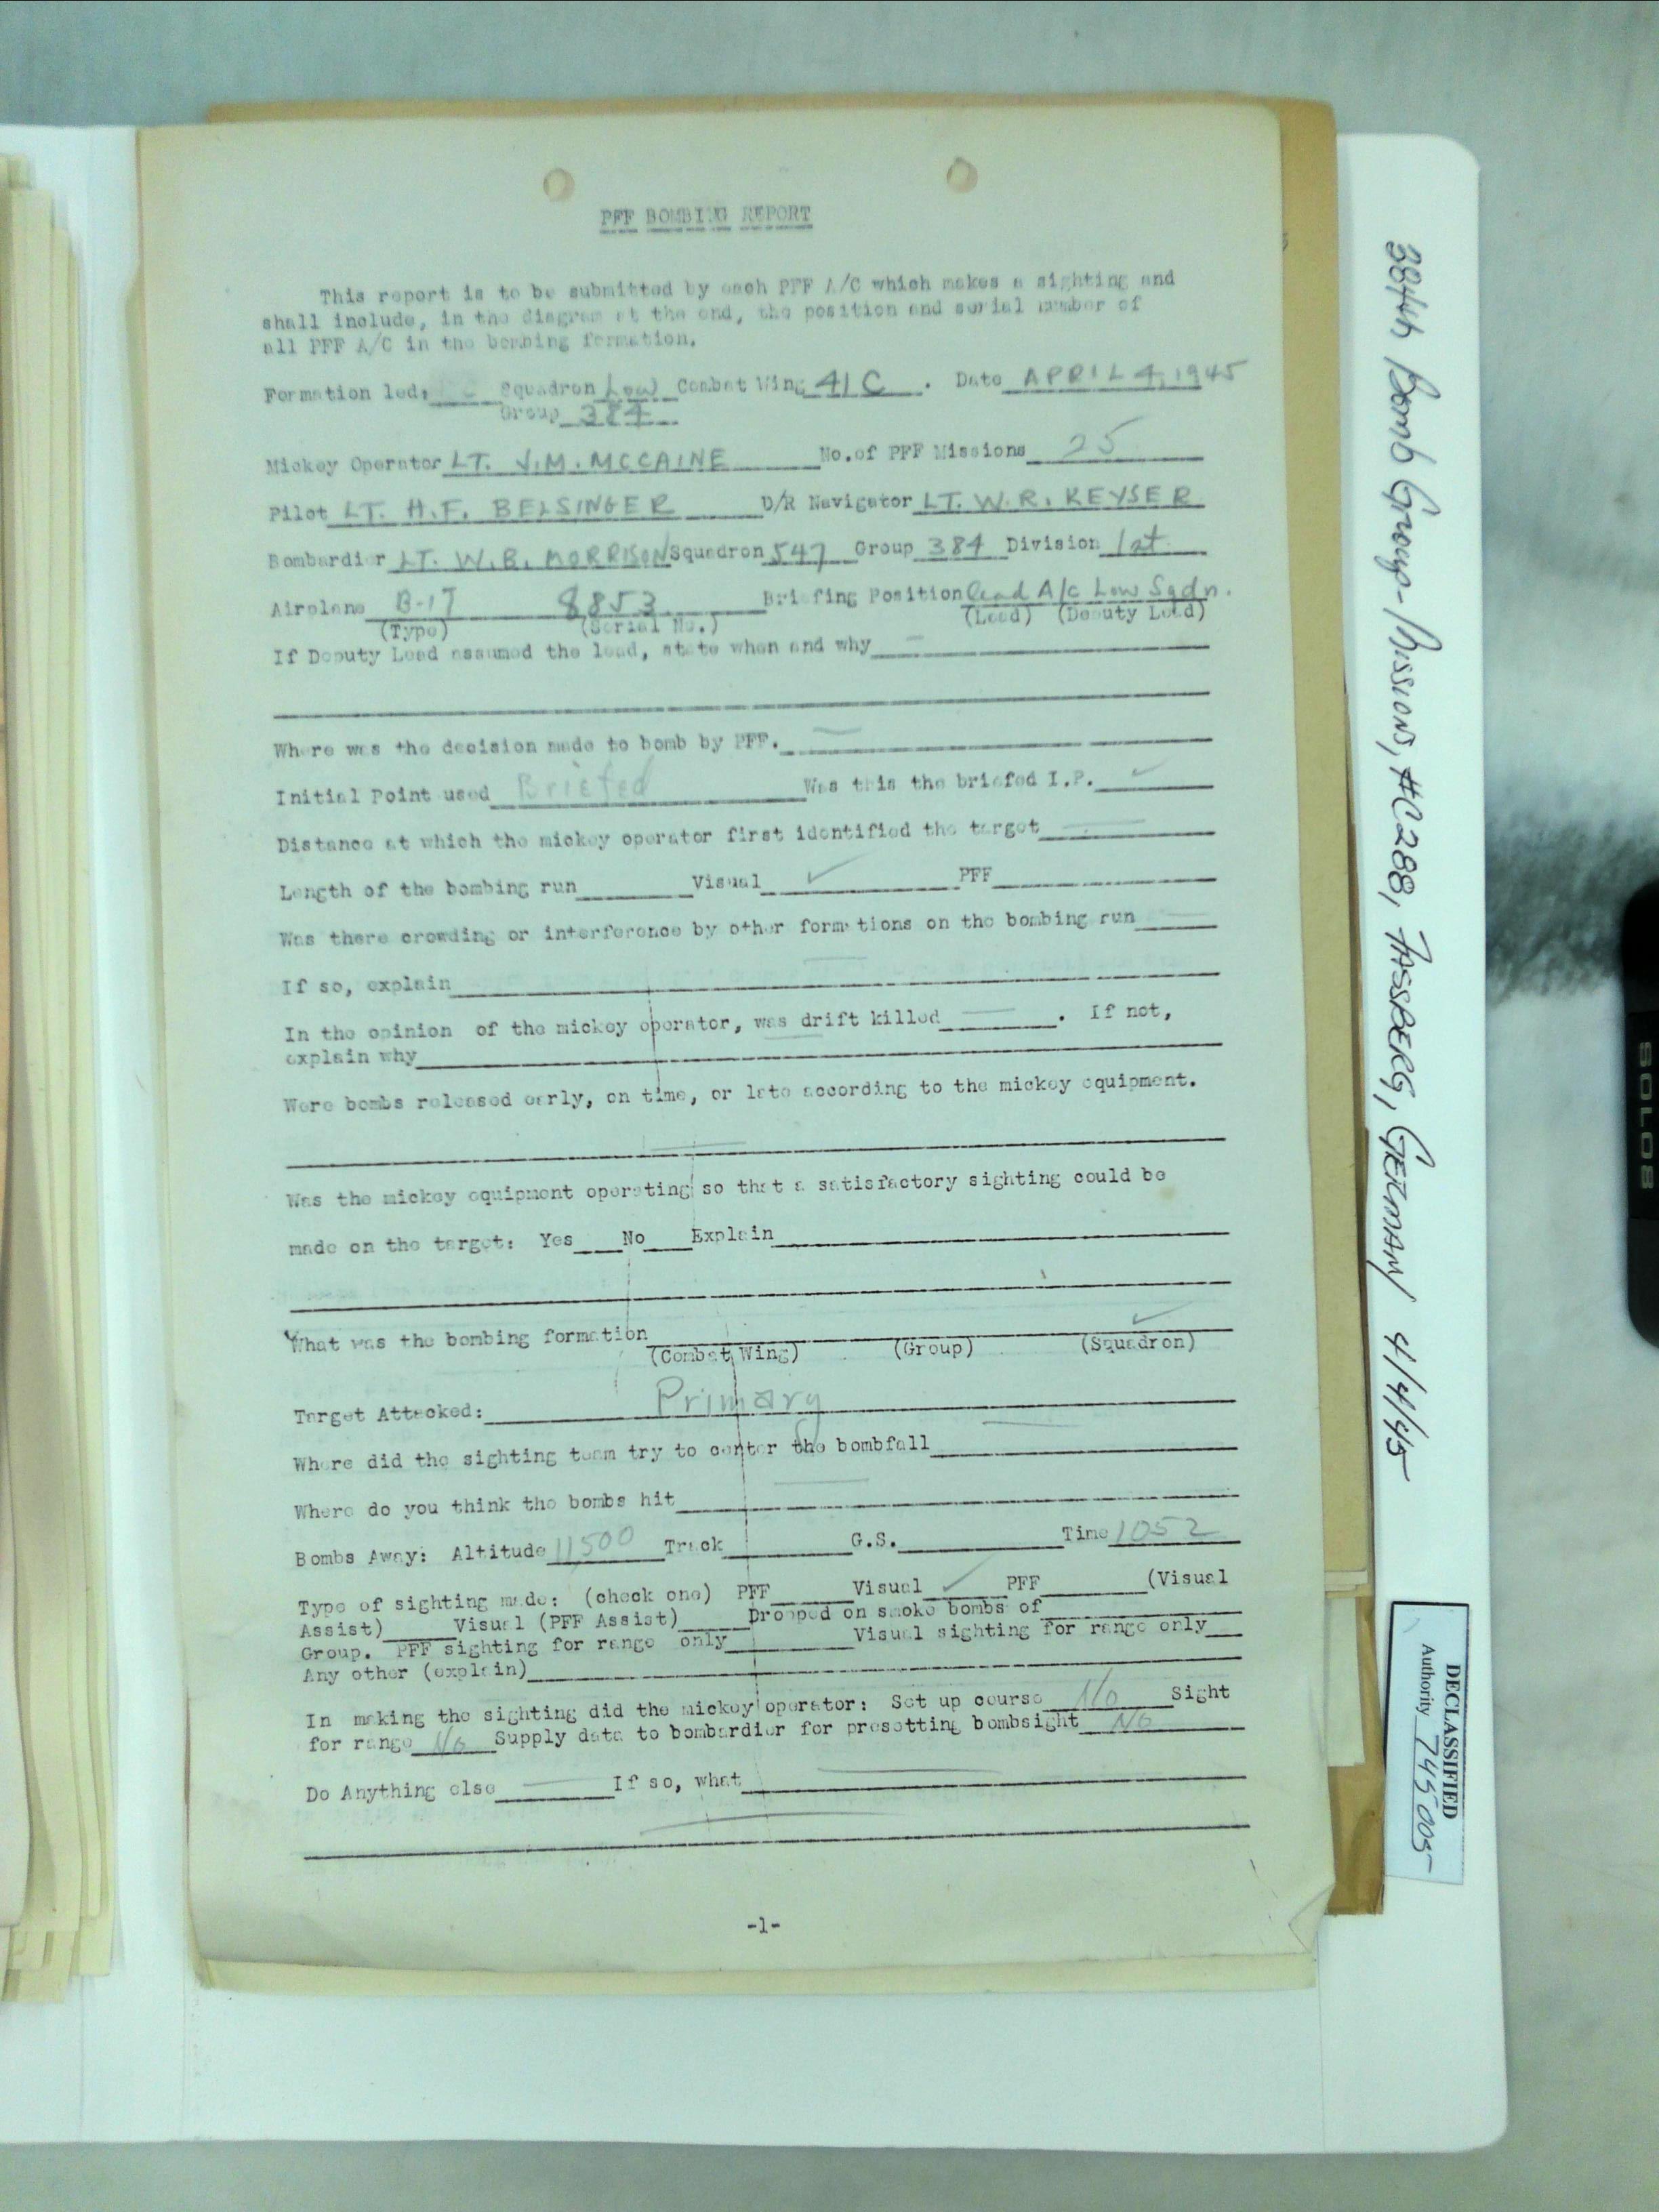 PFF BOMBING REPORT
This report is to be submitted by each PFF A/C which makes a sighting and
shall include, in the diagram at the end, the position and serial number of
all PFF A/C in the bombing formation.
Formation led: Squadron Low Combat Wing 41 C . Date APRIL 4, 1945
Group 384
Mickey Operator LT. J.M. MCCAINE No. of PFF Missions 25
Pilot LT. H.F. BELSINGER D/R Navigator LT. W.R. KEYSER
Bombardier LT. W.B. MORRISON Squadron 547 Group 384 Division 1st
Airplane B-17 8853 Briefing Position lead A/c Low Sqdn.
(Type) (Serial No.) (Lead) (Deputy Lead)
If Deputy Lead assumed the lead, state when and why —
Where was the decision made to bomb by PFF. —
Initial Point used Briefed Was this the briefed I.P. ✓
Distance at which the mickey operator first identified the target —
Length of the bombing run Visual ✓ PFF
Was there crowding or interference by other formations on the bombing run —
If so, explain —
In the opinion of the mickey operator, was drift killed — . If not,
explain why —
Were bombs released early, on time, or late according to the mickey equipment.
—
Was the mickey equipment operating so that a satisfactory sighting could be
made on the target: Yes No Explain
What was the bombing formation ✓
(Combat Wing) (Group) (Squadron)
Target Attacked: Primary
Where did the sighting team try to center the bombfall —
Where do you think the bombs hit —
Bombs Away: Altitude 11500 Track G.S. Time 1052
Type of sighting made: (check one) PFF Visual ✓ PFF (Visual
Assist) Visual (PFF Assist) Dropped on smoke bombs of
Group. PFF sighting for range only Visual sighting for range only
Any other (explain)
In making the sighting did the mickey operator: Set up course No Sight
for range No Supply data to bombardier for presetting bombsight No
Do Anything else — If so, what —
—
-1-
384th Bomb Group - Mission, #C288, FASSBERG, GERMANY 4/4/45
DECLASSIFIED
Authority 745005
SOLOB